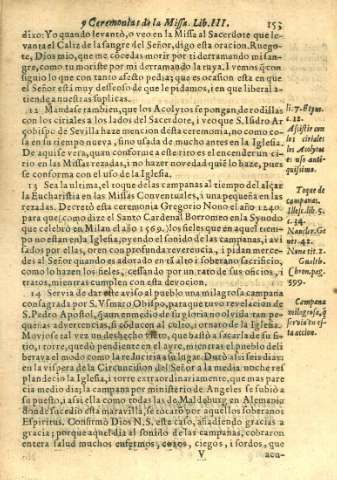 y Ceremonias de la Missa. Lib. III. 153
dixo: Yo quando levantò, o veo en la Missa al Sacerdote que le-
vanta el Caliz de la sangre del Señor, digo esta oracion. Ruego-
te, Dios mio, que me cocedas morir por ti derramando mi san-
gre, como tu moriste por mi derramando la tuya. I vemos q̃ con-
siguio lo que con tanto afecto pedia; que es ocasion esta en que
el Señor está muy desseoso de que le pidamos, i en que liberal a-
tiende a nuestras suplicas.
12 Mandase tambien, que los Acolytos se pongan de rodillas
con los ciriales a los lados del Sacerdote, i veo que S. Isidro Ar-
çobispo de Sevilla haze mencion desta ceremonia, no como co-
sa en su tiempo nueva, sino usada de mucho antes en la Iglesia.
De aqui se vera, quan conforme a este rito es el encender un ci-
rio en las Missas rezadas, i no hazer novedad quiē lo haze, pues
se conforma con el uso de la Iglesia.
13 Sea la ultima, el toque de las campanas al tiempo del alçar
la Eucharistia en las Missas Conventuales, i una pequeña en las
rezadas. Decretò esta ceremonia Gregorio Nono el año 1240.
para que (como dize el Santo Cardenal Borromeo en la Synodo
que celebrò en Milan el año 1569.) los fieles que en aquel tiem-
po no estan en la Iglesia, oyendo el sonido de las campanas, i avi
sados por ellas, oren con profunda reverencia, i pidan merce-
des al Señor quando es adorado en esta alto i soberano sacrificio,
como lo hazen los fieles, cessando por un rato de sus oficios, i
tratos, mientras cumplen con esta devocion.
14 Servia de dar este aviso al pueblo una milagrosa campana
consagrada por S. Obispo, para que tuvo revelacion de
S. Pedro Apostol, q̃ aun en medio de su gloria no olvida tan pe-
queñas advertencias, si cōducen al culto, i ornato de la Iglesia.
Moviose tal vez un desecho viēto, que bastò a sacarla de su si-
tio, i torre, quedò pendiente en el ayre, mientras el pueblo deli
berava el modo como la reduciria a su lugar. Durò alli seis dias:
en la vispera de la Circuncision del Señor a la media noche res
plandecio la Iglesia, i torre extraordinariamente, que mas pare
cia medio dia; la campana por ministerio de Angeles se subiò a
su puesto, i assi ella como todas las de Maldeburg en Alemania
donde sucedio esta maravilla, se tocarõ por aquellos soberanos
Espiritus. Confirmò Dios N.S. este caso, añadiendo gracias a
gracia; porque aquel dia al sonido de las campanas, cobraron
entera salud muchos enfermos, cojos, ciegos, i sordos, que
V acu-
li. 7.
c. 12.
Assistir con
los ciriales
los Acolytos
es uso anti-
quissimo.
Toque de
campanas.
Illesc. lib. 5.
c. 24.
Naucler. Ge
ner. 42.
Chron. pag.
599.
Campana
milagrosa, q̃
servia en es-
ta accion.